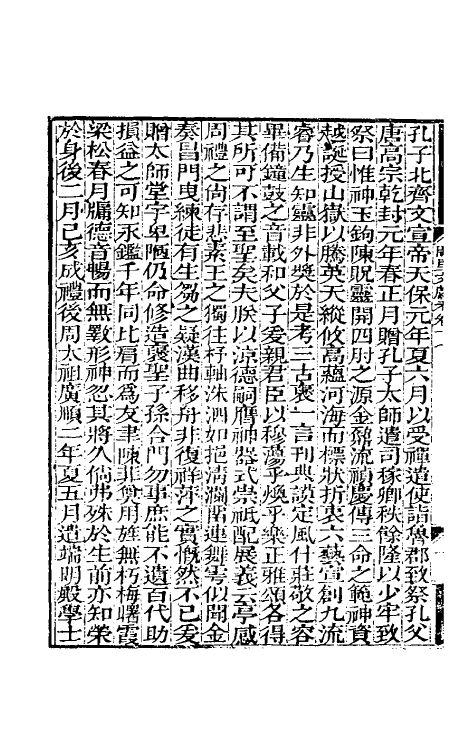 孔子北齊文宣帝天保元年夏六月以受禪遣使詣魯郡致祭孔父
唐高宗乾封元年春正月贈孔子太師遣司稼鄉秩餘隆以少牢致
祭曰惟神玉鉤陳貺靈開四肘之源金𨰻流禎慶傳三命之範神資
越誕授山嶽以騰英天縱攸高蘊河海而標狀折衷六藝宣創九流
睿乃生知靈非外獎於是考三古褒一言刊典謨定風什莊敬之容
畢備鐘鼓之音載和父子爰親君臣以穆蕩乎煥乎樂正雅頌各得
其所可不謂至聖矣夫朕以涼德嗣膺神器式崇祗配展義云亭感
周禮之尚存悲素王之獨往杼軸洙泗如挹清瀾留連舞雩似聞金
奏昌門曳練徒有生芻之疑漢曲移舟非復祥萍之實慨然不已爰
贈太師堂宇卑陋仍命修造褒聖子孫合門勿事庶能不遺百代助
損益之可知永鑑千年同比肩而為友聿陳菲奠用旌無朽梅曙霞
梁松春月牖德音暢而無斁形神忽其將久倘弗殊於生前亦知榮
於身後二月己亥成禮後周太祖廣順二年夏五月遣端明殿學士